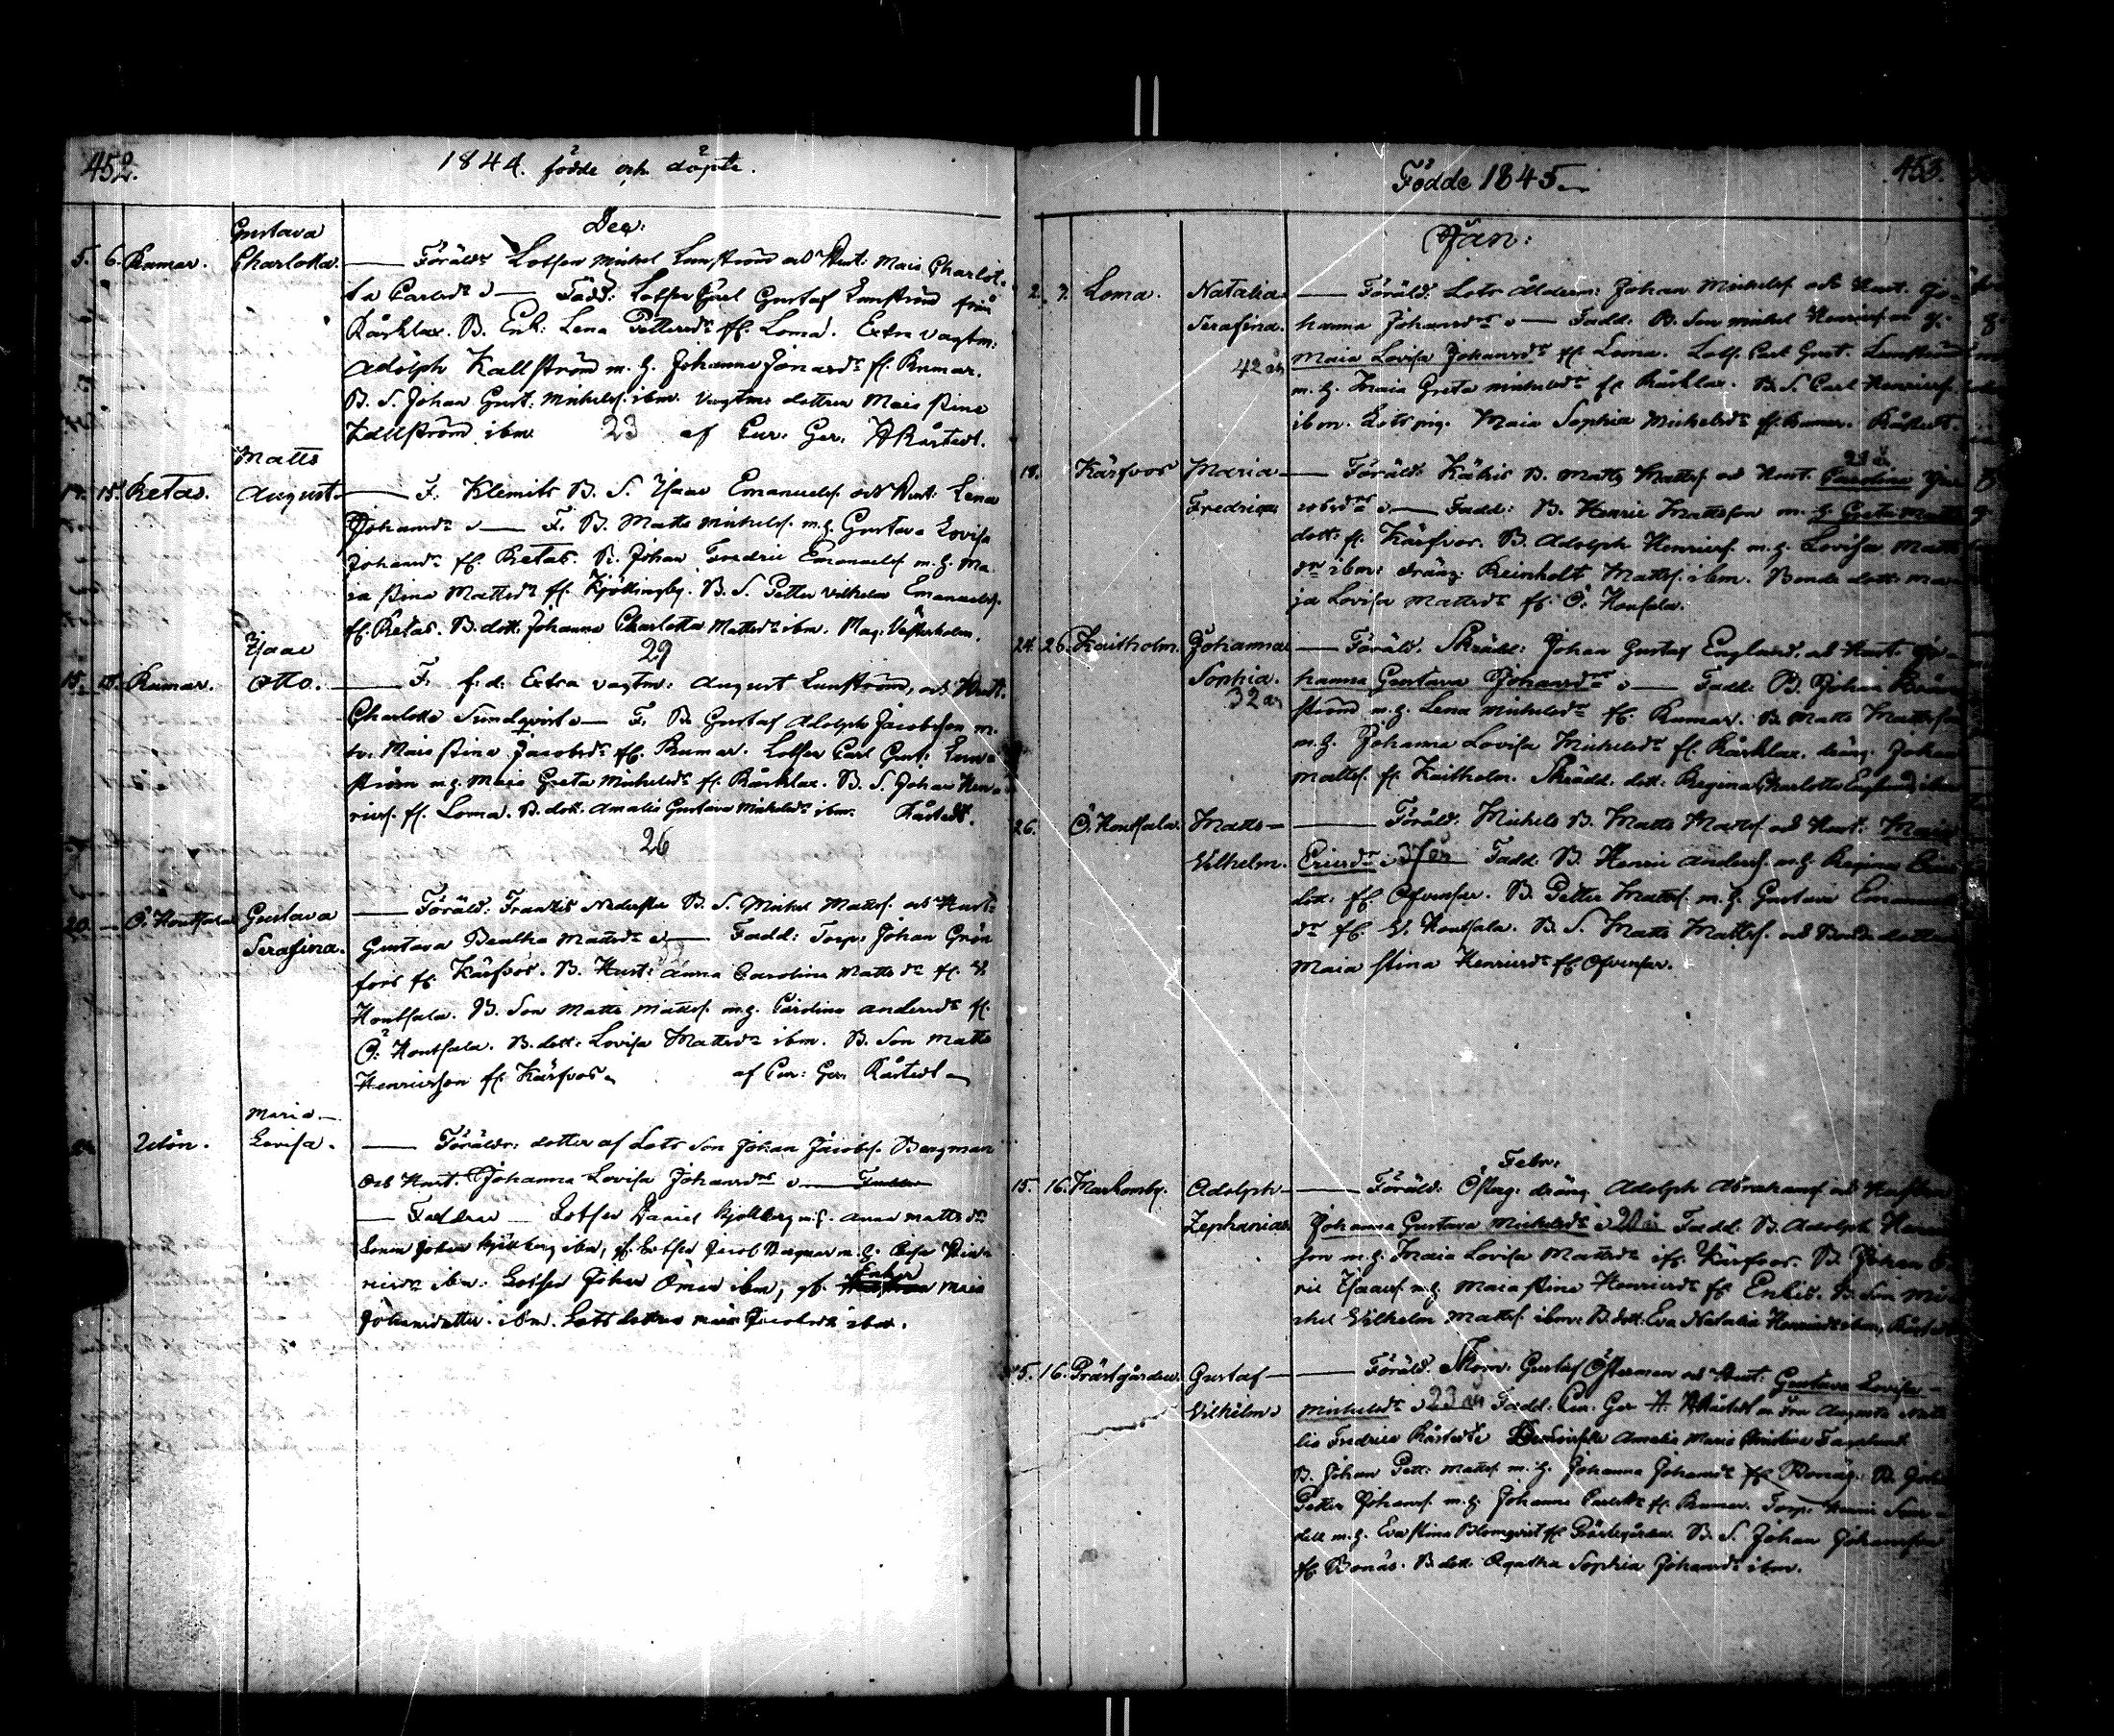 452.
1844. födde och döpte.
Dec:
Gustava
5. 6. Rumar. Charlotta. — Föräldr Lotsen Michel Lunström och Hust: Maia Charlot-
ta Carlsdr — Fadd: Lotsen Carl Gustaf Lunström från
Kårklax. B. Enk: Lena Pettersdr fr. Loma. Extra vagtm:
Adolph Kallström m. h. Johanna Jonasdr fr. Rumar.
B. S. Johan Gust. Michelss. ibm. Vagtms dottren Maia Stina
Kallström ibm. 23 af Cur. Ger. Råstedt.
Matts
14. 15. Retas. August. — F. Klemits B. S. Isaac Emanuelss. och Hust: Lena
Johansdr — F. B. Matts Michelss. m. h. Gustava Lovisa
Johansdr fr. Retas. B. Johan Fredric Emanuelss. m. h. Ma-
ia Stina Mattsdr fr. Kjöklingby. B. S. Petter Vilhelm Emanuelss.
fr. Retas. B. dott. Johanna Charlotta Mattsdr ibm. Mag. Vesterholm.
29
Isaac
15. 18. Rumar. Otto. — F. f. d. Extra vagtm: August Lunström, och Hust.
Charlotta Sundqvist — F. B. Gustaf Adolph Jacobsson m.
h. Maia Stina Jacobsdr fr. Rumar. Lotsen Carl Gust. Lun-
ström m. h. Maia Greta Michelsdr fr. Kårklax. B. S. Johan Hen-
ricss. fr. Loma. B. dott. Amalia Gustava Michelsdr ibm. Råstedt.
26
20. — Ö. Hontsala Gustava — Föräld: Frantzis Nederste B. S. Michel Mattss. och Hust:
Serafina. Gustava Beatha Mattsdr — Fadd: Torp. Johan Grön
fors fr. Kärfvos. B. Hust: Anna Carolina Mattsdr fr. V.
Hontsala. B. Son Matts Mattss. m. h. Carolina Andersdr fr.
Ö. Hontsala. B. dott: Lovisa Mattsdr ibm. B. Son Matts
Henricsson fr. Kärfvos. af Cur: Ger. Råstedt
Maria
Utön. Lovisa. — Föräldr: dotter af Lots Son Johan Jacobss. Bergman
och Hust. Johanna Lovisa Johansdr
— Faddrar — Lotsen Daniel Kjellberg m. h. Anna Mattsdr
Sonen Johan Kjellberg ibm, fr. Lotsen Jacob Bergman m. h. Caisa Hen-
ricsdr ibm. Lotsen Johan Öman ibm, fr. Enkan Maia
Johansdotter ibm. Lots dottren Maia Jacobsdr ibm.
Födde 1845. 453.
Jan:
2. 7. Loma. Natalia — Föräld. Lots Ålderm: Johan Michelss. och Hust. Jo-
Serafina. hanna Johansdr — Fadd: B. Son Michel Henricss. m. h.
42 år Maia Lovisa Johansdr fr. Loma. Lots. Carl Gust. Lunström
m. h. Maia Greta Michelsdr fr. Kårklax. B. S. Carl Henricss.
ibm. Lots pig. Maia Sophia Michelsdr fr. Rumar. Råstedt.
18. Kärfvos Maria — Föräld: Kähis B. Matts Mattss. och Hust. Carolina Ja-
Fredrica cobsdr — Fadd: B. Henric Mattsson m. h. Greta Matts
dott. fr. Kärfvos. B. Adolph Henricss. m. h. Lovisa Matts
dr ibm: dräng Reinholt Mattss. ibm. Bonde dott: Ma-
ja Lovisa Mattsdr fr. Ö. Hontsala.
24. 26. Kaitholm. Johanna — Föräld. Skrädd: Johan Gustaf Englund. och Hust. Jo-
Sophia. hanna Gustava Johansdr — Fadd: B. Johan
32 år ström m. h. Lena Michelsdr fr. Rumar. B. Matts Mattsson
m. h. Johanna Lovisa Michelsdr fr. Kårklax. dräng Johan
Mattss. fr. Kaitholm. Skrädd. dott. Regina Charlotta Englund, ibm
26. Ö. Hontsala. Matts — Föräld. Michels B. Matts Mattss. och Hust: Maia
Vilhelm. Ericsdr 37 år Fadd. B. Henric Anderss. m. h. Regina
dott. fr. Ofvensor. B. Petter Mattss. m. h. Gustava Emanuels
dr fr. V. Hontsala. B. S. Matts Mattss. och Bonde dottren
Maia Stina Henricsdr fr. Ofvensor.
Febr:
15. 16. Markomby. Adolph — Föräld. Österg. dräng Adolph Abrahamss. och Hustrun
Zephanias Johanna Gustava Michelsdr Fadd. B. Adolph
son m. h. Maia Lovisa Mattsdr fr. Kärfvos. B. Johan
ric Isacss. m. h. Maia Stina Henricsdr fr. Enkis. B. Son Mi-
chel Vilhelm Mattss. ibm: B. dott: Eva Natalia Henricsdr ibm. Råstedt
15. 16. Prästgården. Gustaf — Föräld. Skom: Gustaf Österman och Hust: Gustava Lovisa
Vilhelm Michelsdr 23 år Fadd. Cur. Ger A. Råstedt m. Fru Augusta Nata
lia Fredrica Råstedt Demoiselle Amalia Maria Christina Fagerlund
B. Johan Pett. Mattss. m. h. Johanna Johansdr fr. Bonäs. B. Joh
Petter Johanss. m. h. Johanna Carlsdr fr. Rumar. Torp. Henric Sun-
dell m. h. Eva Stina Blomqvist fr. Prästgården. B. S. Johan Johansson
fr. Bonäs. B. dott. Agatha Sophia Johansdr ibm.